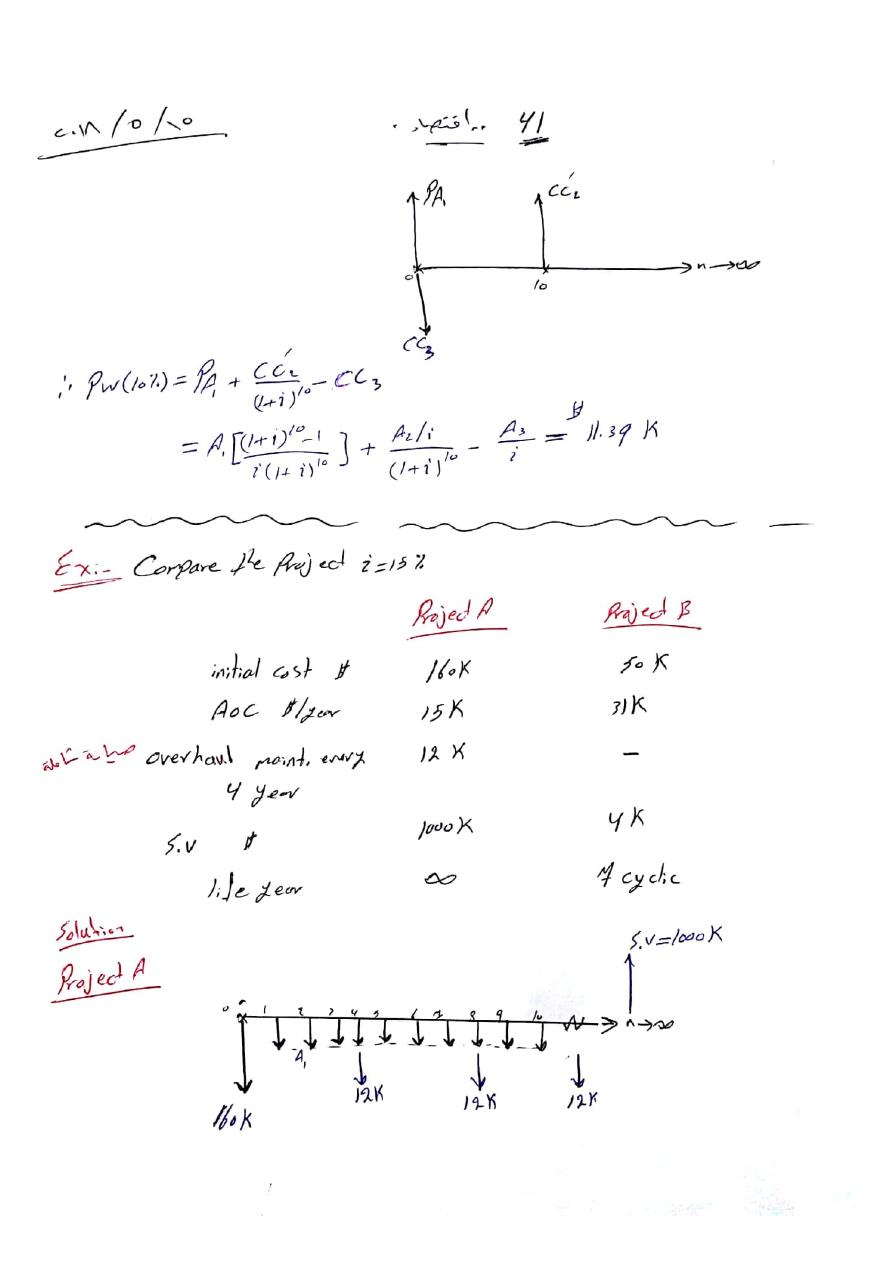 ٢٠١٨/٥/١٥
اقتصاد 41
PA₁ CC₂′
0 10 n→∞
CC₃
∴ PW(10%) = PA₁ + CC₂′/(1+i)^10 - CC₃
= A₁[((1+i)^10 - 1)/(i(1+i)^10)] + (A₂/i)/(1+i)^10 - A₃/i = $ 11.39 K
Ex:- Compare the Project i=15%
Project A Project B
initial cost $ 160K 50K
AOC $/year 15K 31K
صيانة شاملة overhaul maint. every 12K –
4 year
S.V $ 1000K 4K
life year ∞ 7 cyclic
Solution
S.V=1000K
Project A
0 1 2 3 4 5 6 7 8 9 10 n→∞
A₁
12K 12K 12K
160K